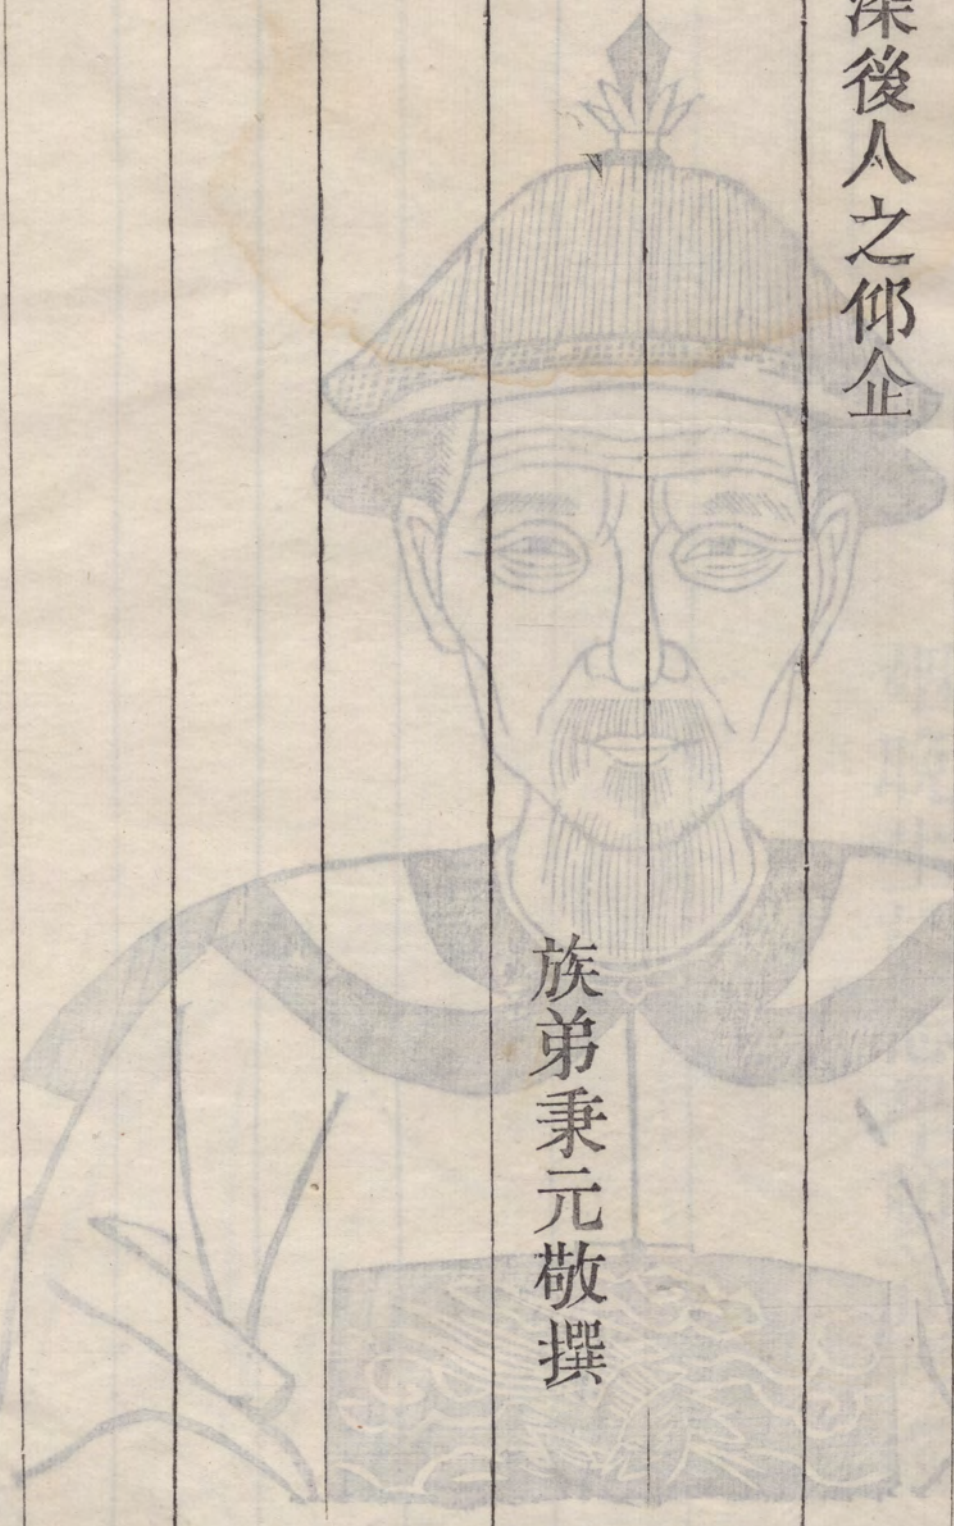 深後人之仰企
族弟秉元敬撰